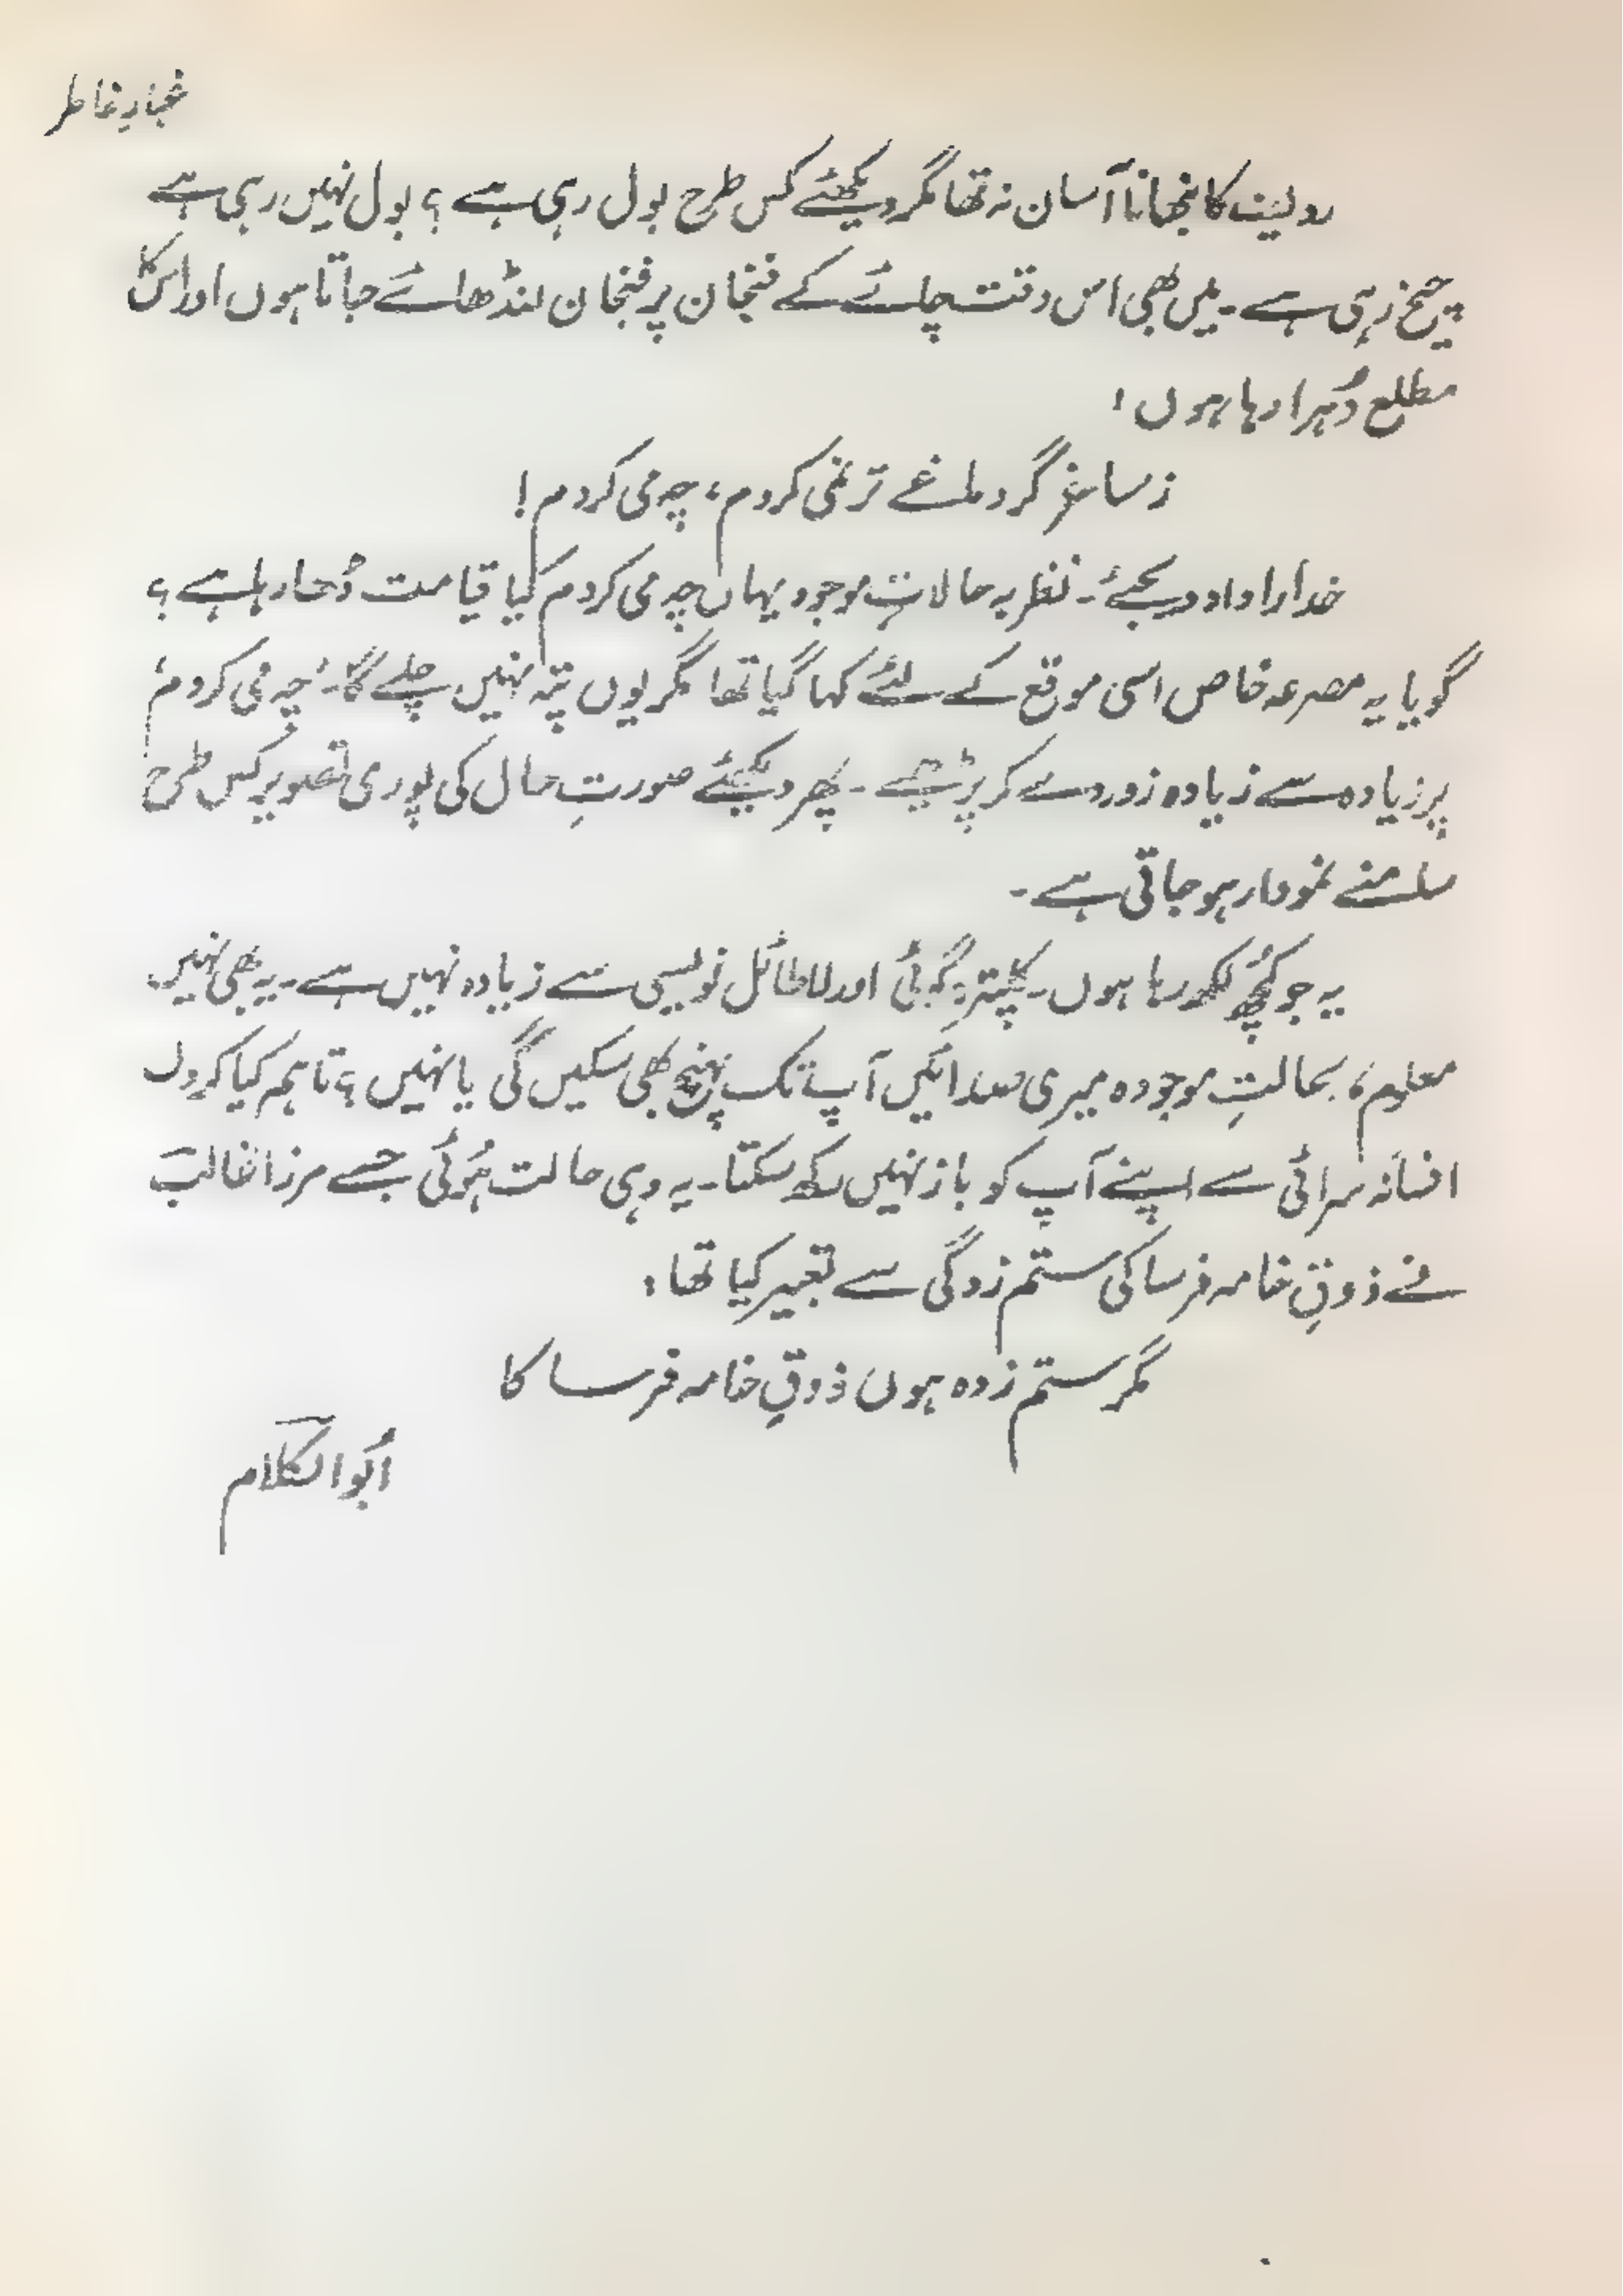 غبارِ خاطر
ردیف کا نبھانا آسان نہ تھا مگر دیکھئے کس طرح بول رہی ہے ؟ بول نہیں رہی ہے
چیخ رہی ہے ۔ میں بھی اس وقت چائے کے فنجان پر فنجان لنڈھائے جاتا ہوں اور اس کا
مطلع دُہرا رہا ہوں :
ز ساغر گر دماغے تر نمی کردم ، چہ می کردم !
خدارا داد دیجئے ۔ نظر بہ حالاتِ موجودہ یہاں چہ می کردم کیا قیامت ڈھا رہا ہے ؟
گویا یہ مصرعہ خاص اسی موقع کے لئے کہا گیا تھا مگر یوں پتہ نہیں چلے گا ۔ ’چہ می کردم‘
پر زیادہ سے زیادہ زور دے کر پڑھیے ۔ پھر دیکھئے صورتِ حال کی پوری تصویر کس طرح
سامنے نمودار ہو جاتی ہے ۔
یہ جو کچھ لکھ رہا ہوں ۔ کلپترہ گوئی اور لاطائل نویسی سے زیادہ نہیں ہے ۔ یہ بھی نہیں
معلوم ، بحالتِ موجودہ میری صدائیں آپ تک پہنچ بھی سکیں گی یا نہیں ؟ تاہم کیا کروں
افسانہ سرائی سے اپنے آپ کو باز نہیں رکھ سکتا ۔ یہ وہی حالت ہوئی جسے مرزا غالب
نے ذوقِ خامہ فرسا کی ستم زدگی سے تعبیر کیا تھا :
مگر ستم زدہ ہوں ذوقِ خامہ فرسا کا
ابُوالکلام